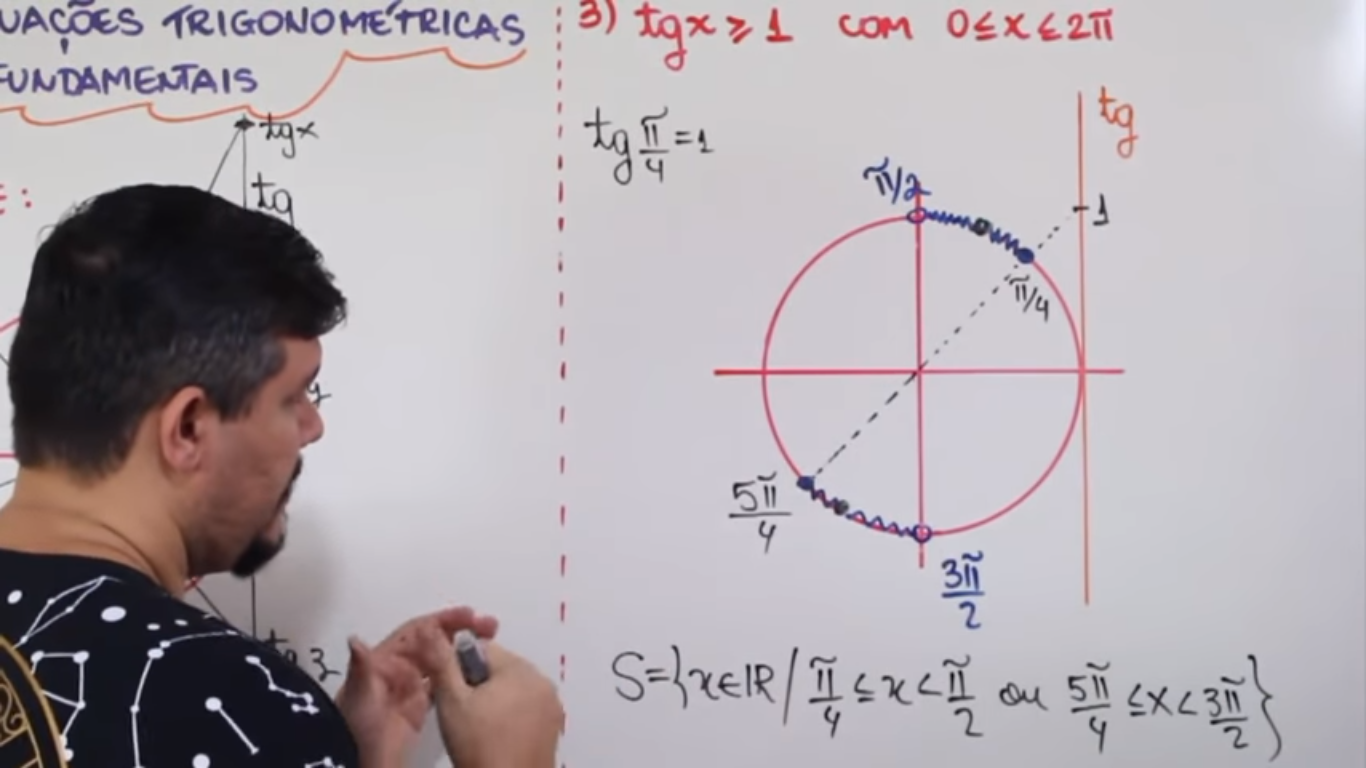 UAÇÕES TRIGONOMÉTRICAS
FUNDAMENTAIS
E:
tgx
tg
3) tgx ⩾ 1 com 0≤x≤2π
tg π/4 = 1
tg
1
π/2
π/4
5π/4
3π/2
S={x∈IR / π/4 ≤ x < π/2 ou 5π/4 ≤ x < 3π/2}